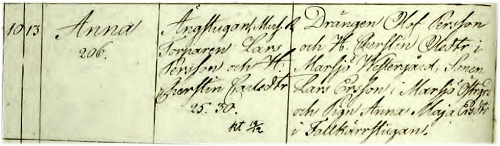 10 13 Anna
206.
Ängstugan, Marsj.
Torparen Lars
Persson och H.
Cherstin Carlsdtr
25. 30.
kt 19/12
Drängen Olof Persson
och H. Cherstin Olsdtr i
Marsjö Westergård, Sonen
Lars Ersson i Marsjö Östrgrd
och Pign Anna Maja Ersdtr
i Fallkärrstugan.